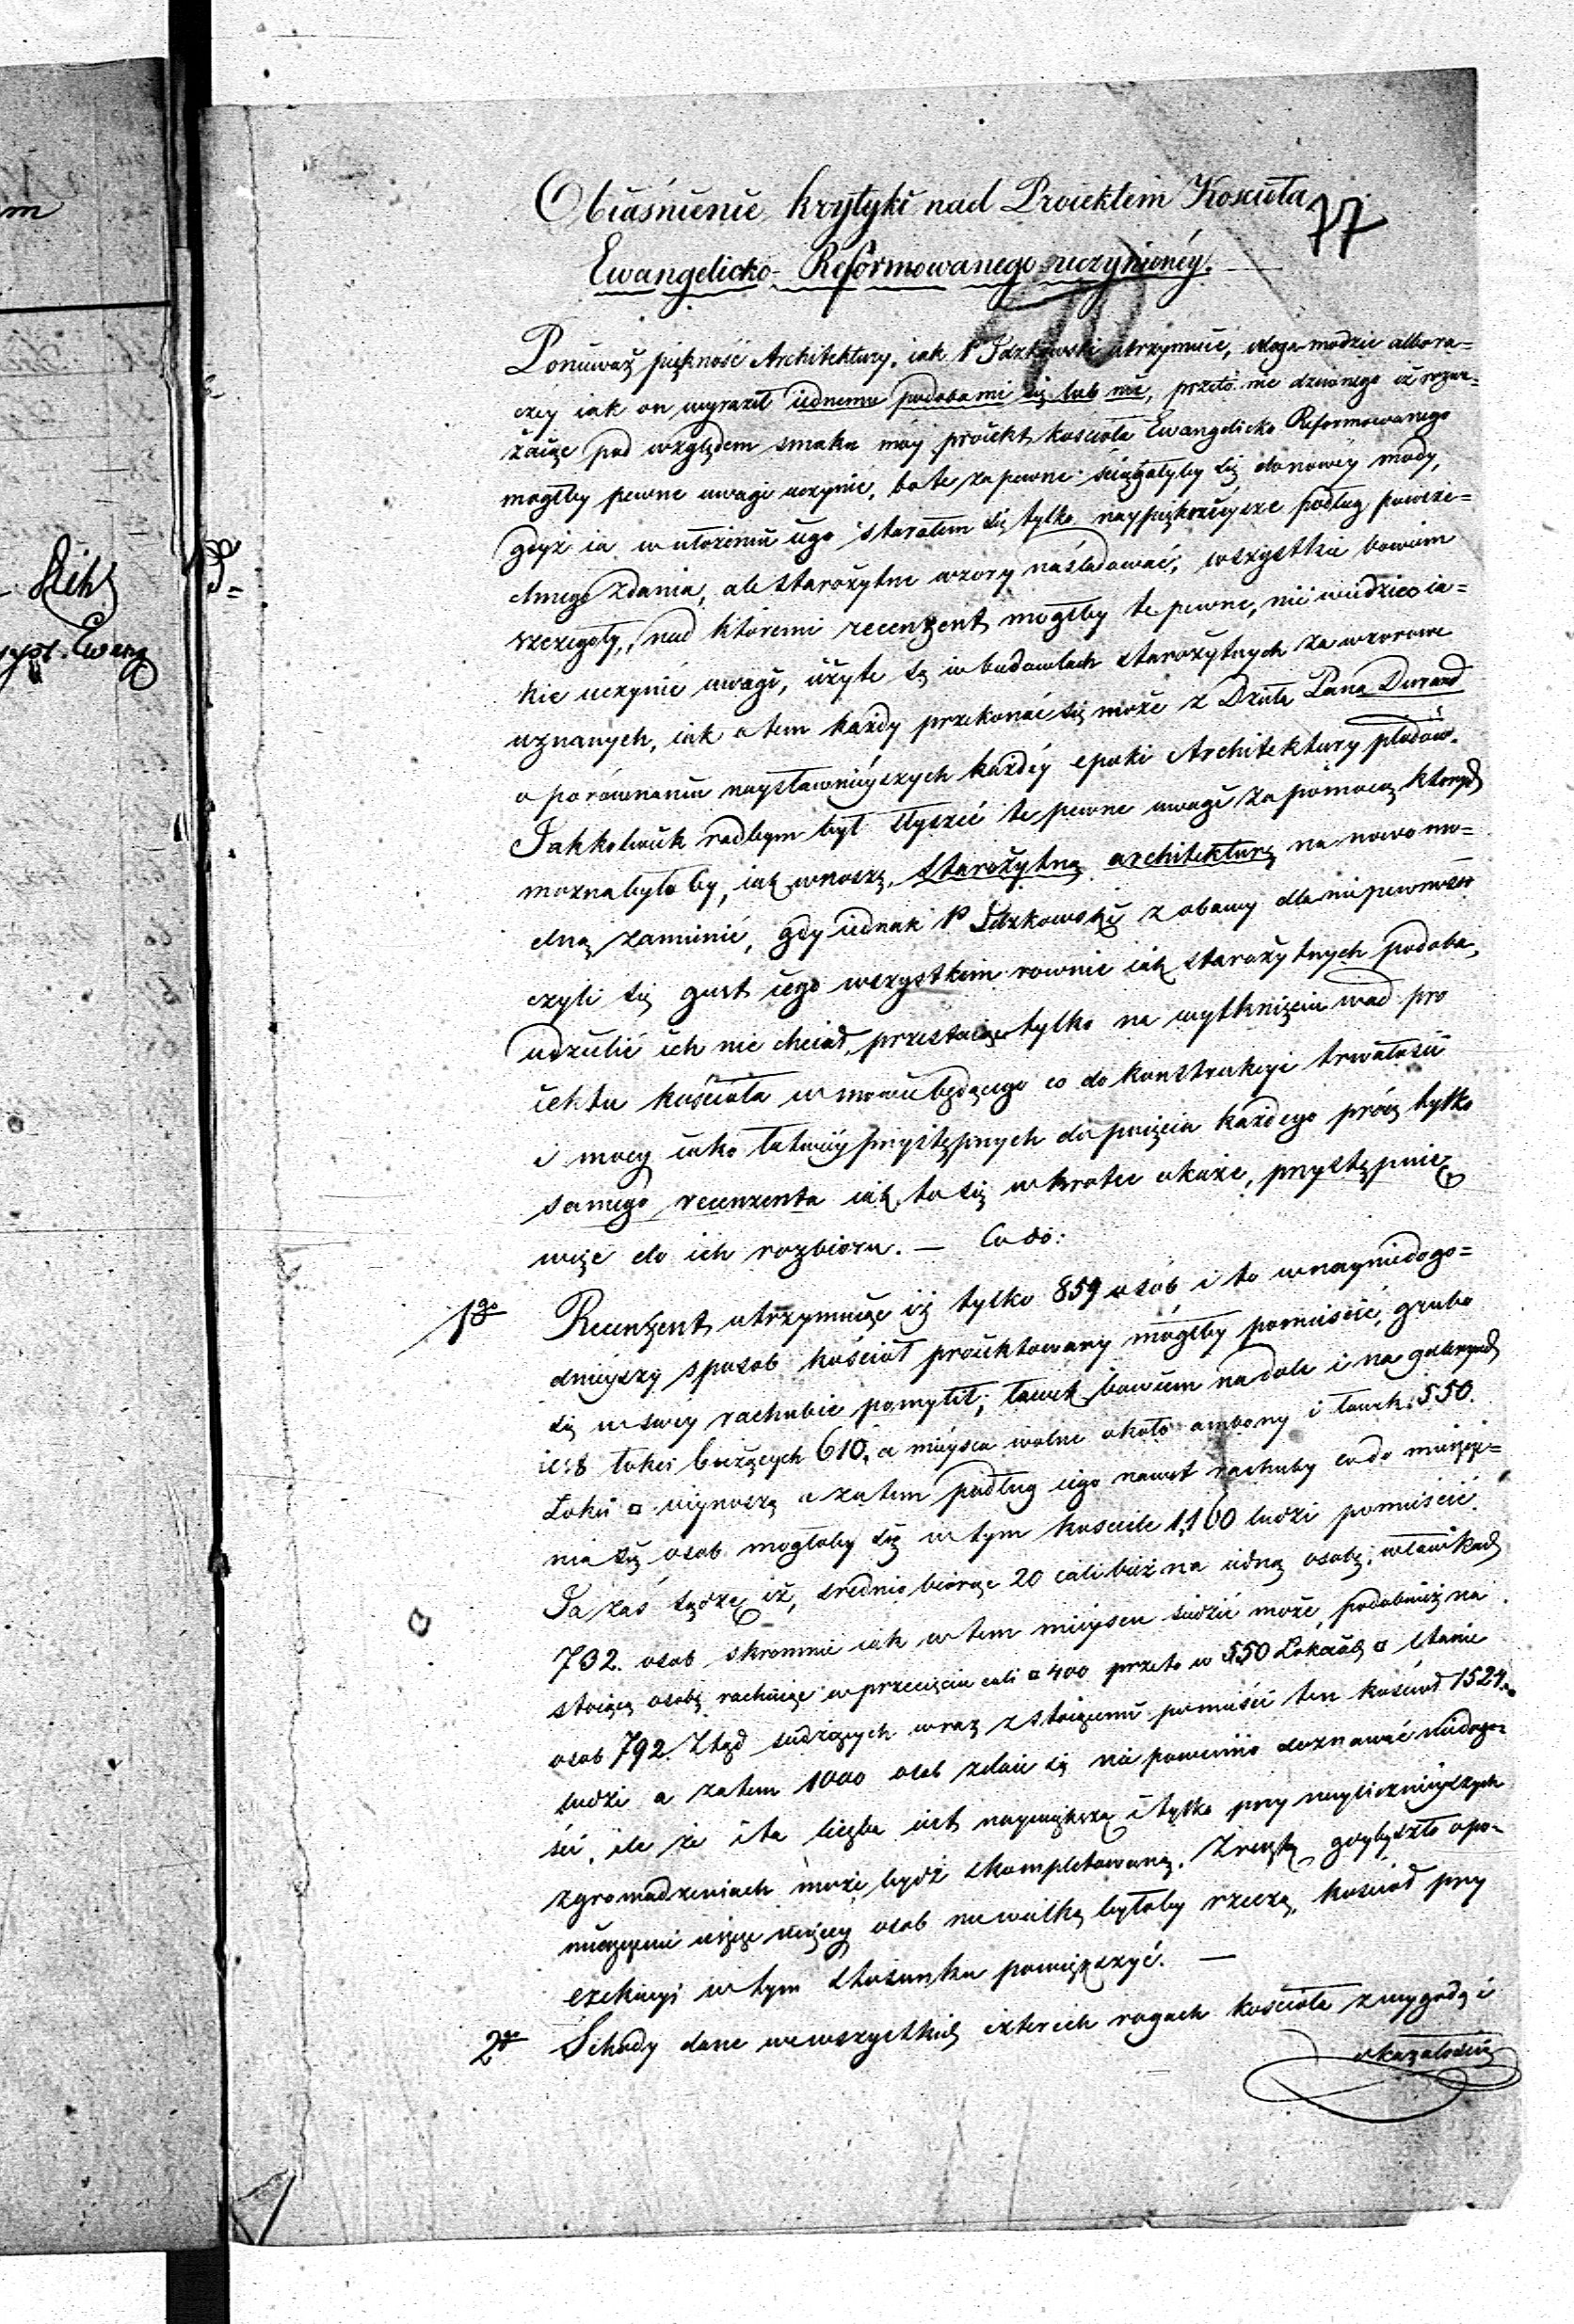 77
Obiaśnienie krytyki nad Proiektem Kościoła
Ewangelicko-Reformowanego uczynionéy.
Ponieważ piękność Architektury, iak P Idzkowski utrzymuie, ulega modzie albora=
czey iak on wyraził iednemu podoba mi się lub nie, przeto nic dziwnego iż rozwa=
żaiąc pod względem smaku móy proiekt kościoła Ewangelicko Reformowanego
mogłby pewne uwagi uczynić, bo te zapewne ściągałyby się do nowéy mody,
gdyż ia w ułożeniu iego starałem się tylko naypięknieysze podług powsze=
chnego zdania, ale starożytne wzory naśladować; wszystkie bowiem
szczegóły, nad któremi recenzent mogłby te pewne, nie wiedzieć ia=
kie uczynić uwagi, użyte są w budowlach starożytnych za wzorowe
uznanych, iak o tem każdy przekonać się może z Dzieła Pana Durand
o porównaniu naysławnieyszych każdéy epoki Architektury płodów.
Jakkolwiek radbym był słyszeć te pewne uwagi za pomocą których
można byłoby, iak wnoszę, starożytną architekturę na nowomo=
dną zamienić, gdy iednak P Idzkowski z obawy dla niepewności
czyli się gust iego wszystkim rownie iak starożytnych podoba,
udzielić ich nie chciał, przestaiąc tylko na wytknięciu wad pro
iektu kościoła w mowie będącego co do konstrukcyi trwałości
i mocy iako łatwiéy przystępnych do poięcia każdego prócz tylko
samego recenzenta iak to się wkrotce okaże, przystępuię
więc do ich rozbioru. — Co do:
1go Recenzent utrzymuiąc iż tylko 859 osób i to w nayniedogo=
dnieyszy sposob kościół proiektowany mógłby pomieścić, grubo
się w swéy rachubie pomylił; ławek bowiem na dole i na galeryach
iest łokci bieżących 610, a mieysca wolne około ambony i ławek 550.
Łokci □ wynoszą a zatem podług iego nawet rachuby co do mieszcze=
nia się osob mogłoby się w tym kosciele 1,160 ludzi pomieścić.
Ja zaś sądzę iż, srednio biorąc 20 cali bież na iedną osobę, w ławkach
732. osob skromnie iak w tem mieyscu siedzić może, podobnież na
stoiącą osobę rachuiąc w przecięciu cali □ 400 przeto w 550 Łokciach □ stanie
osob 792. Ztąd siedzących wraz z stoiącemi pomieści ten kościoł 1524.
ludzi a zatem 1000 osob zdaie się nie powinno doznawać niedogo=
ści, ile że i ta liczba iest naywiększą i tylko przy nayliczniéyszych
zgromadzeniach może bydź skompletowaną. Zresztą gdyby szło o po=
mieszczenie ieszcze więcey osob niewielką byłoby rzeczą, kościoł przy
exekucyi w tym stosunku powiększyć. —
2go Schody dane we wszystkich czterech rogach kościoła z wygodą i
okazałością